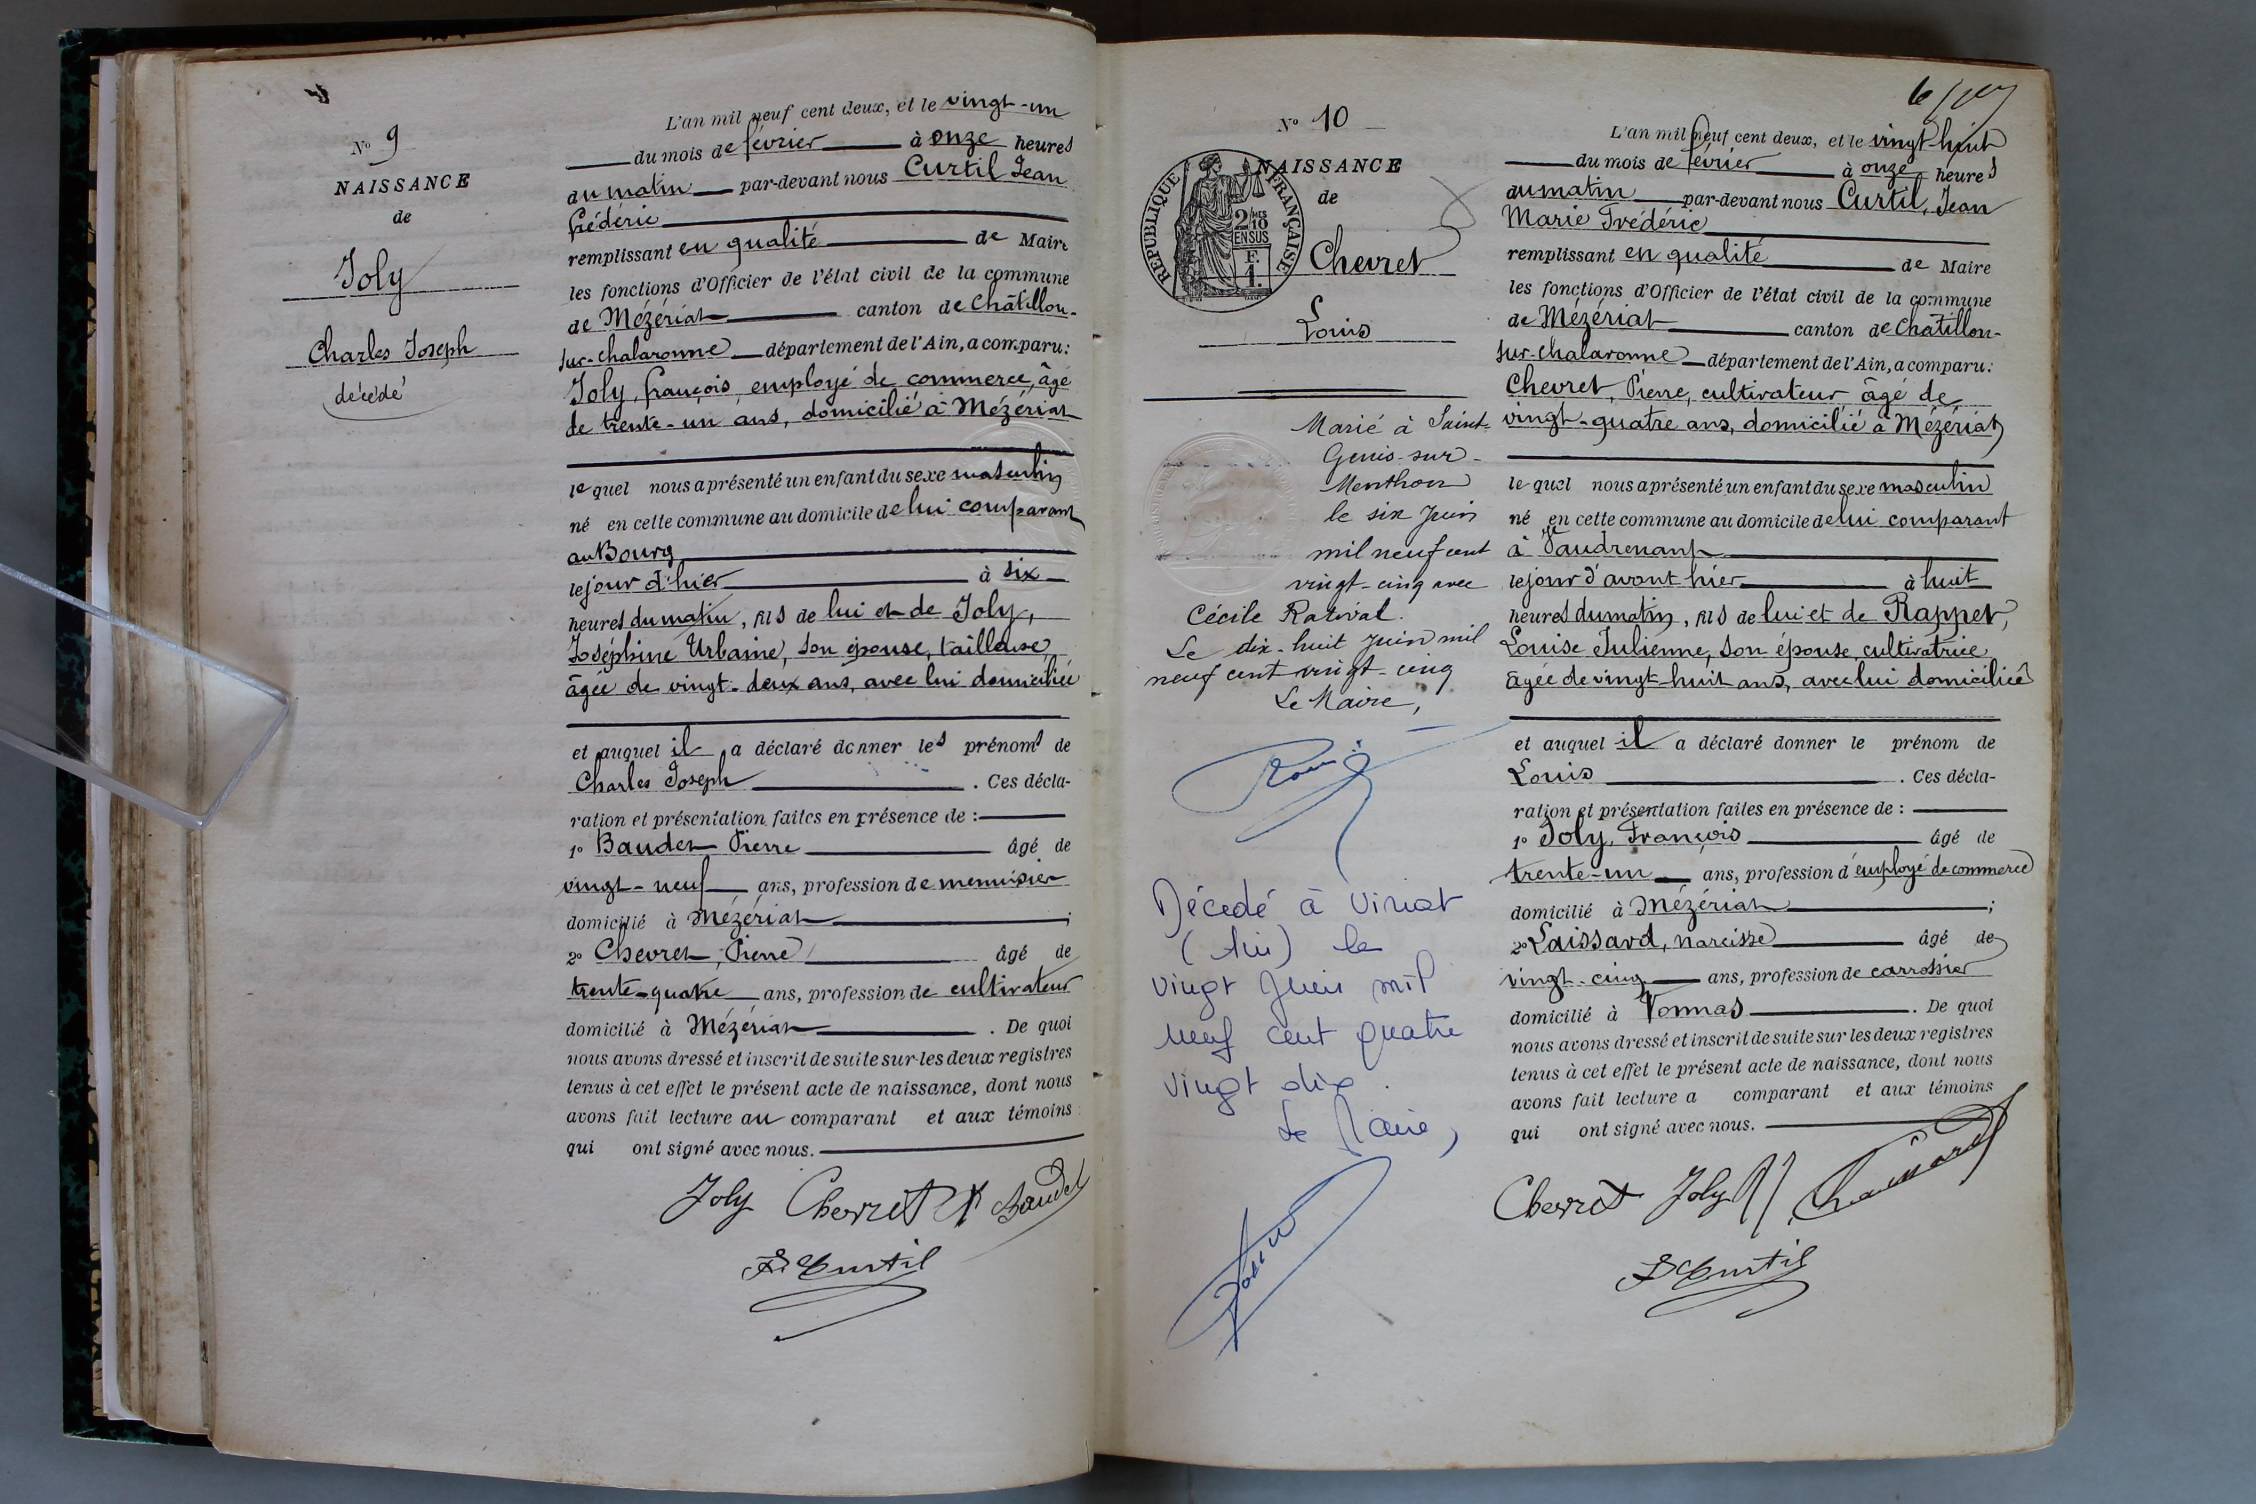 Nº 9
NAISSANCE
de
Joly
Charles Joseph
décédé
L'an mil neuf cent deux, et le vingt-un
du mois de février à onze heures
du matin par-devant nous Curtil Jean
frédéric
remplissant en qualité de Maire
les fonctions d'Officier de l'état civil de la commune
de Mézériat canton de Châtillon-
sur-chalaronne département de l'Ain, a comparu:
Joly, françois, employé de commerce, âgé
de trente-un ans, domicilié à Mézériat
lequel nous a présenté un enfant du sexe masculin
né en cette commune au domicile de lui comparant
au Bourg
le jour d'hier à six
heures du matin, fils de lui et de Joly,
Joséphine Urbaine, son épouse, tailleuse,
âgée de vingt-deux ans, avec lui domiciliée
et auquel il a déclaré donner les prénoms de
Charles Joseph . Ces décla-
ration et présentation faites en présence de :
1º Baudet Pierre âgé de
vingt-neuf ans, profession de menuisier
domicilié à Mézériat ;
2º Chevret, Pierre âgé de
trente-quatre ans, profession de cultivateur
domicilié à Mézériat . De quoi
nous avons dressé et inscrit de suite sur les deux registres
tenus à cet effet le présent acte de naissance, dont nous
avons fait lecture au comparant et aux témoins
qui ont signé avec nous.
Joly Chevret Baudet
Curtil
Nº 10
NAISSANCE
de
RÉPUBLIQUE FRANÇAISE
2/10 EN SUS
F. 1.
Chevret
Louis
Marié à Saint-
Genis-sur-
Menthon
le six juin
mil neuf cent
vingt-cinq avec
Cécile
Le dix-huit juin mil
neuf cent vingt-cinq
Le Maire,
Décédé à Viriat
(Ain) le
vingt juin mil
neuf cent quatre
vingt dix.
Le Maire,
L'an mil neuf cent deux, et le vingt huit
du mois de février à onze heures
du matin par-devant nous Curtil, Jean
Marie Frédéric
remplissant en qualité de Maire
les fonctions d'Officier de l'état civil de la commune
de Mézériat canton de Chatillon-
sur-chalaronne département de l'Ain, a comparu:
Chevret, Pierre, cultivateur, âgé de
vingt-quatre ans, domicilié à Mézériat
lequel nous a présenté un enfant du sexe masculin
né en cette commune au domicile de lui comparant
à
le jour d'avant hier à huit
heures du matin, fils de lui et de Rappet,
Louise Julienne, son épouse, cultivatrice
âgée de vingt-huit ans, avec lui domiciliée
et auquel il a déclaré donner le prénom de
Louis . Ces décla-
ration et présentation faites en présence de :
1º Joly, François âgé de
trente-un ans, profession d'employé de commerce
domicilié à Mézériat ;
2º Laissard, Narcisse âgé de
vingt-cinq ans, profession de carrossier
domicilié à Vonnas . De quoi
nous avons dressé et inscrit de suite sur les deux registres
tenus à cet effet le présent acte de naissance, dont nous
avons fait lecture a comparant et aux témoins
qui ont signé avec nous.
Chevret Joly
Curtil